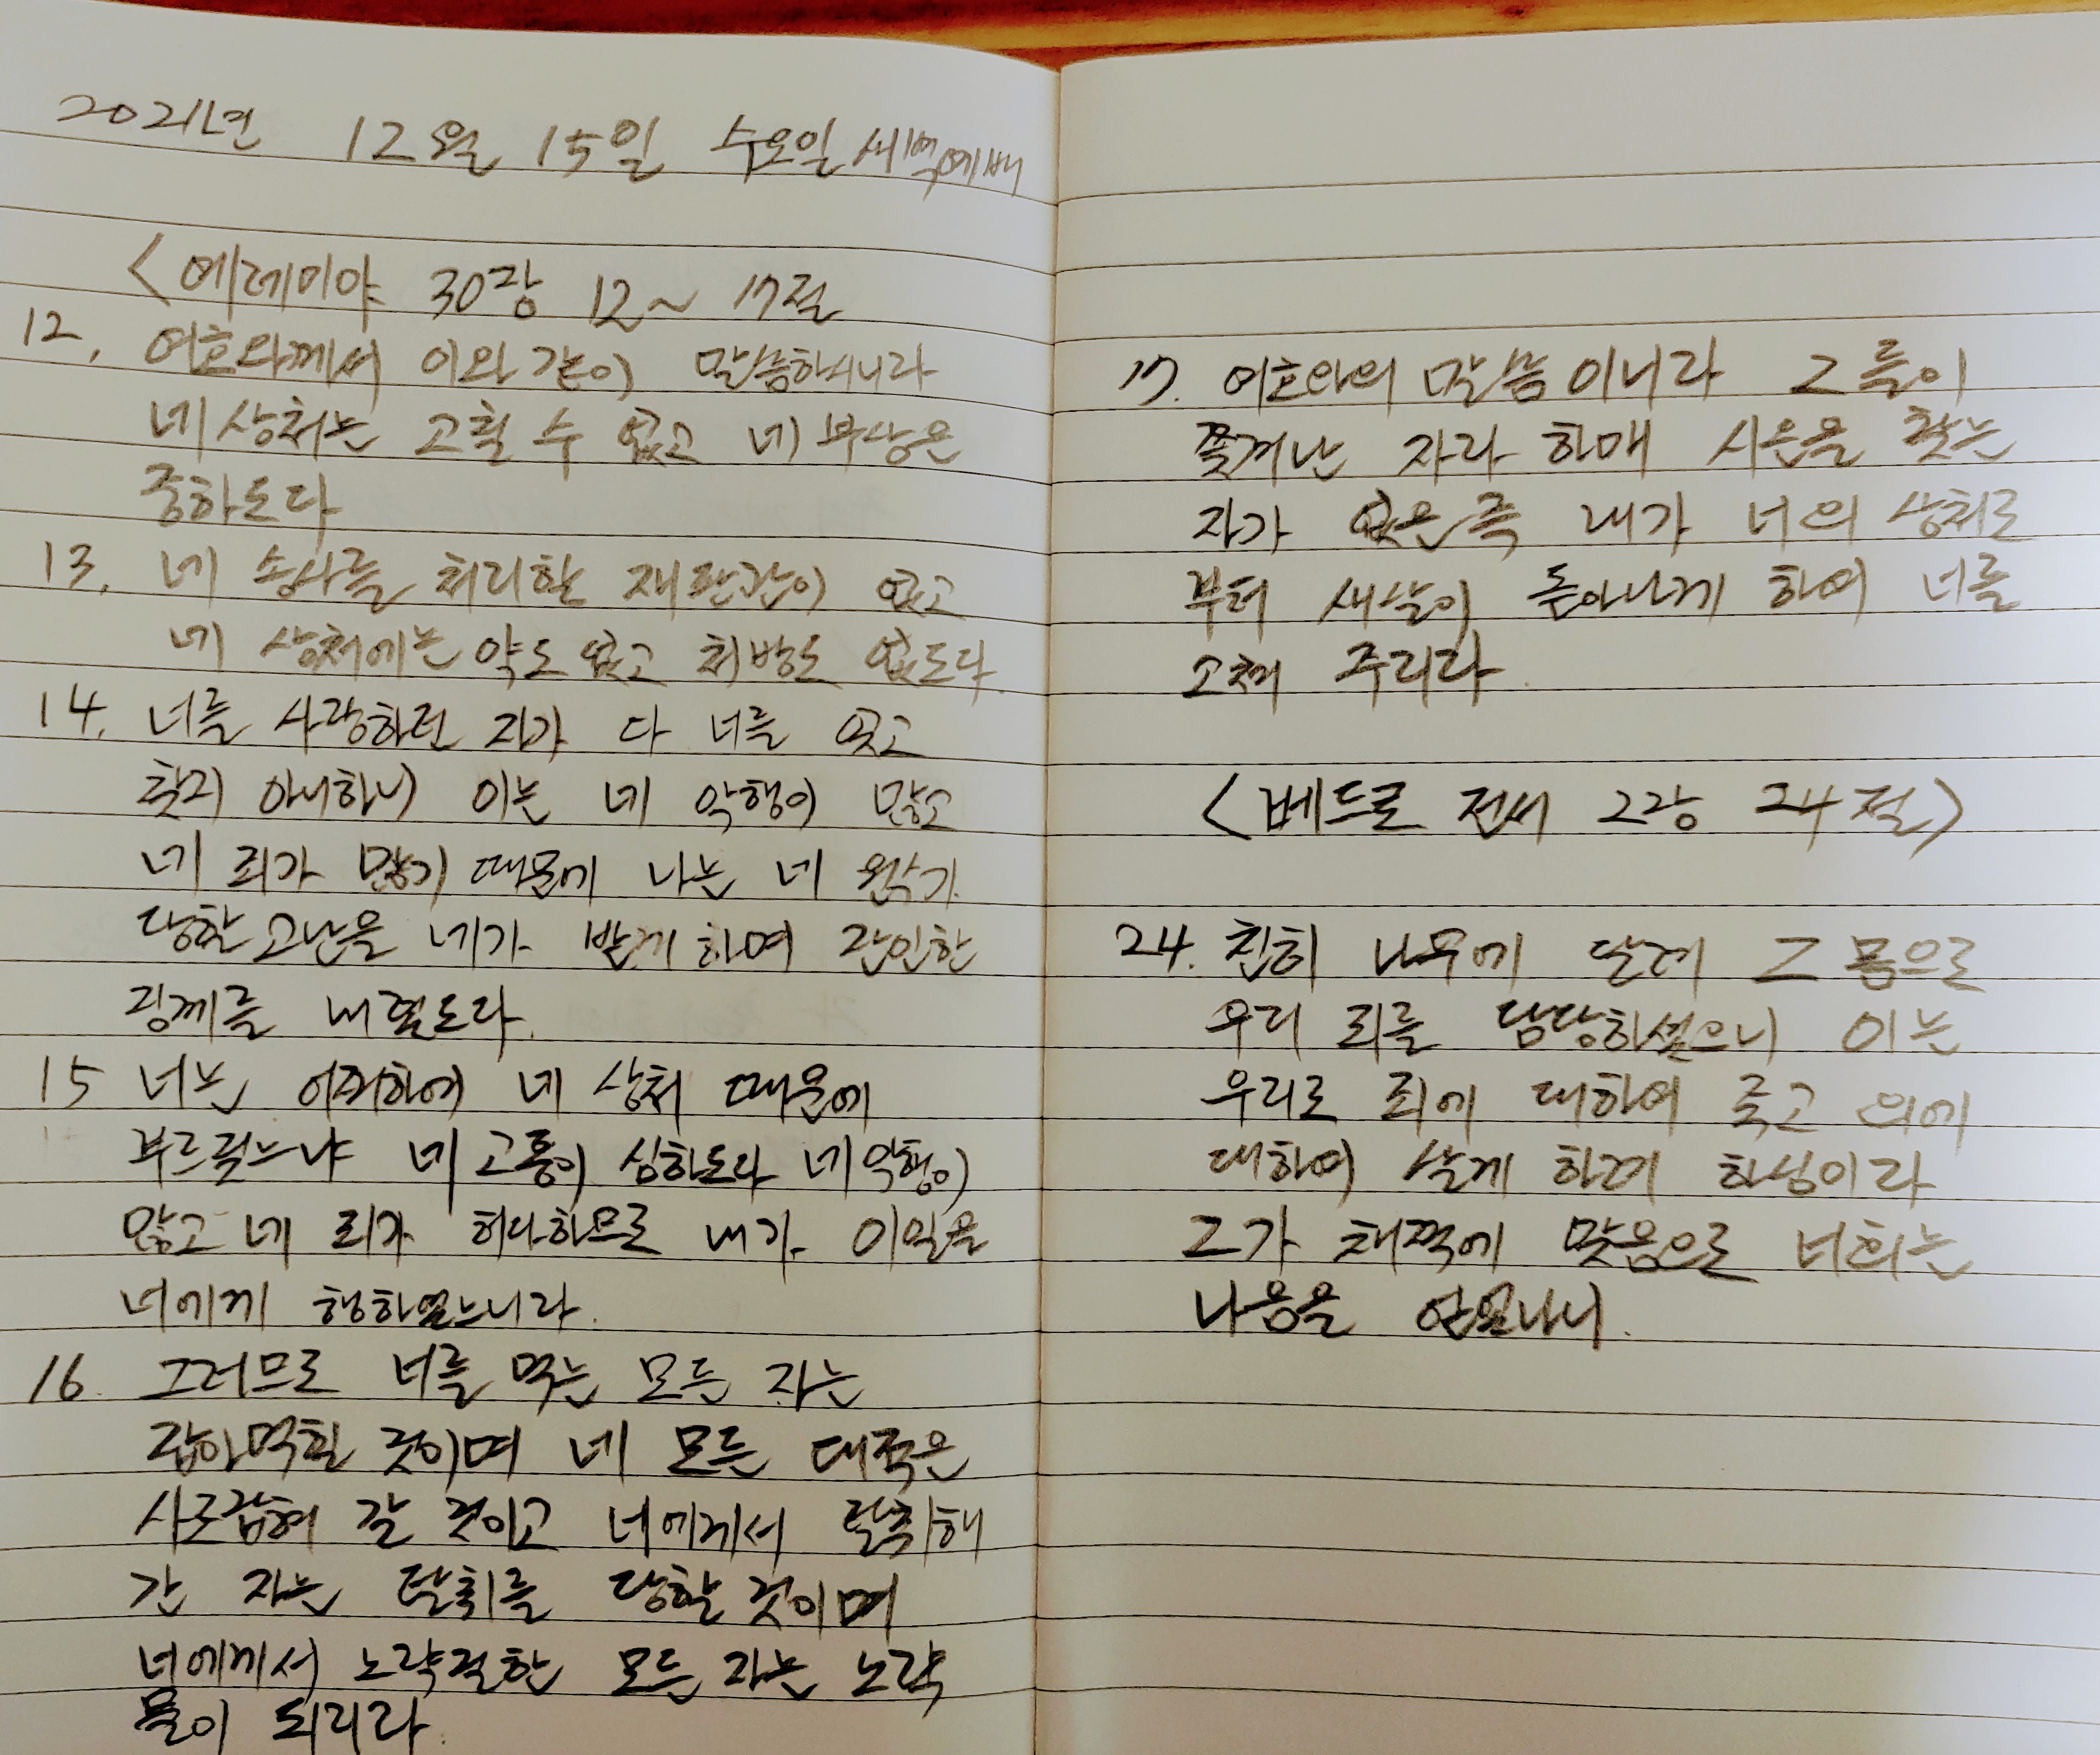 2021년 12월 15일 수요일 새벽예배
<예레미야 30장 12~17절
12. 여호와께서 이와 같이 말씀하시니라
네 상처는 고칠 수 없고 네 부상은
중하도다
13. 네 송사를 처리할 재판관이 없고
네 상처에는 약도 없고 처방도 없도다
14. 너를 사랑하던 자가 다 너를 잊고
찾지 아니하니 이는 네 악행이 많고
네 죄가 많기 때문에 나는 네 원수가
당할 고난을 네가 받게 하며 잔인한
징계를 내렸도다.
15 너는 어찌하여 네 상처 때문에
부르짖느냐 네 고통이 심하도다 네 악행이
많고 네 죄가 허다하므로 내가 이 일을
너에게 행하였느니라.
16. 그러므로 너를 먹는 모든 자는
잡아먹힐 것이며 네 모든 대적은
사로잡혀 갈 것이고 너에게서 탈취해
간 자는 탈취를 당할 것이며
너에게서 노략질한 모든 자는 노략
물이 되리라
17. 여호와의 말씀이니라 그들이
쫓겨난 자라 하매 시온을 찾는
자가 없은즉 내가 너의 상처로
부터 새살이 돋아나게 하여 너를
고쳐 주리라.
<베드로 전서 2장 24절>
24. 친히 나무에 달려 그 몸으로
우리 죄를 담당하셨으니 이는
우리로 죄에 대하여 죽고 의에
대하여 살게 하려 하심이라
그가 채찍에 맞음으로 너희는
나음을 얻었나니.